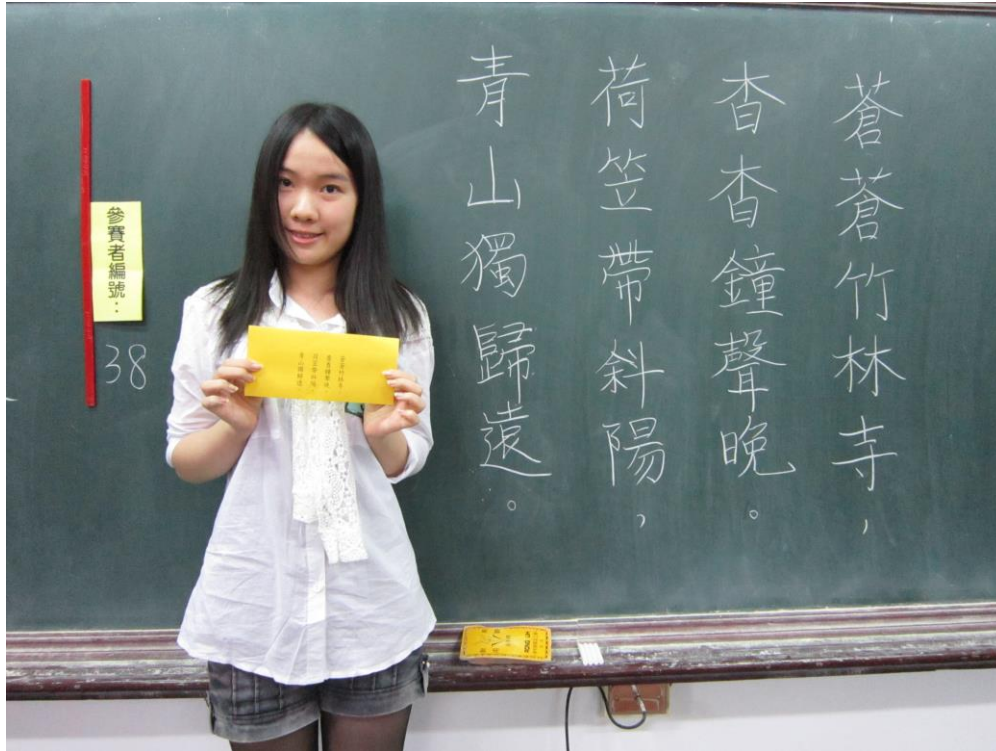 蒼蒼竹林寺，
杳杳鐘聲晚。
荷笠帶斜陽，
青山獨歸遠。
參賽者編號：
38